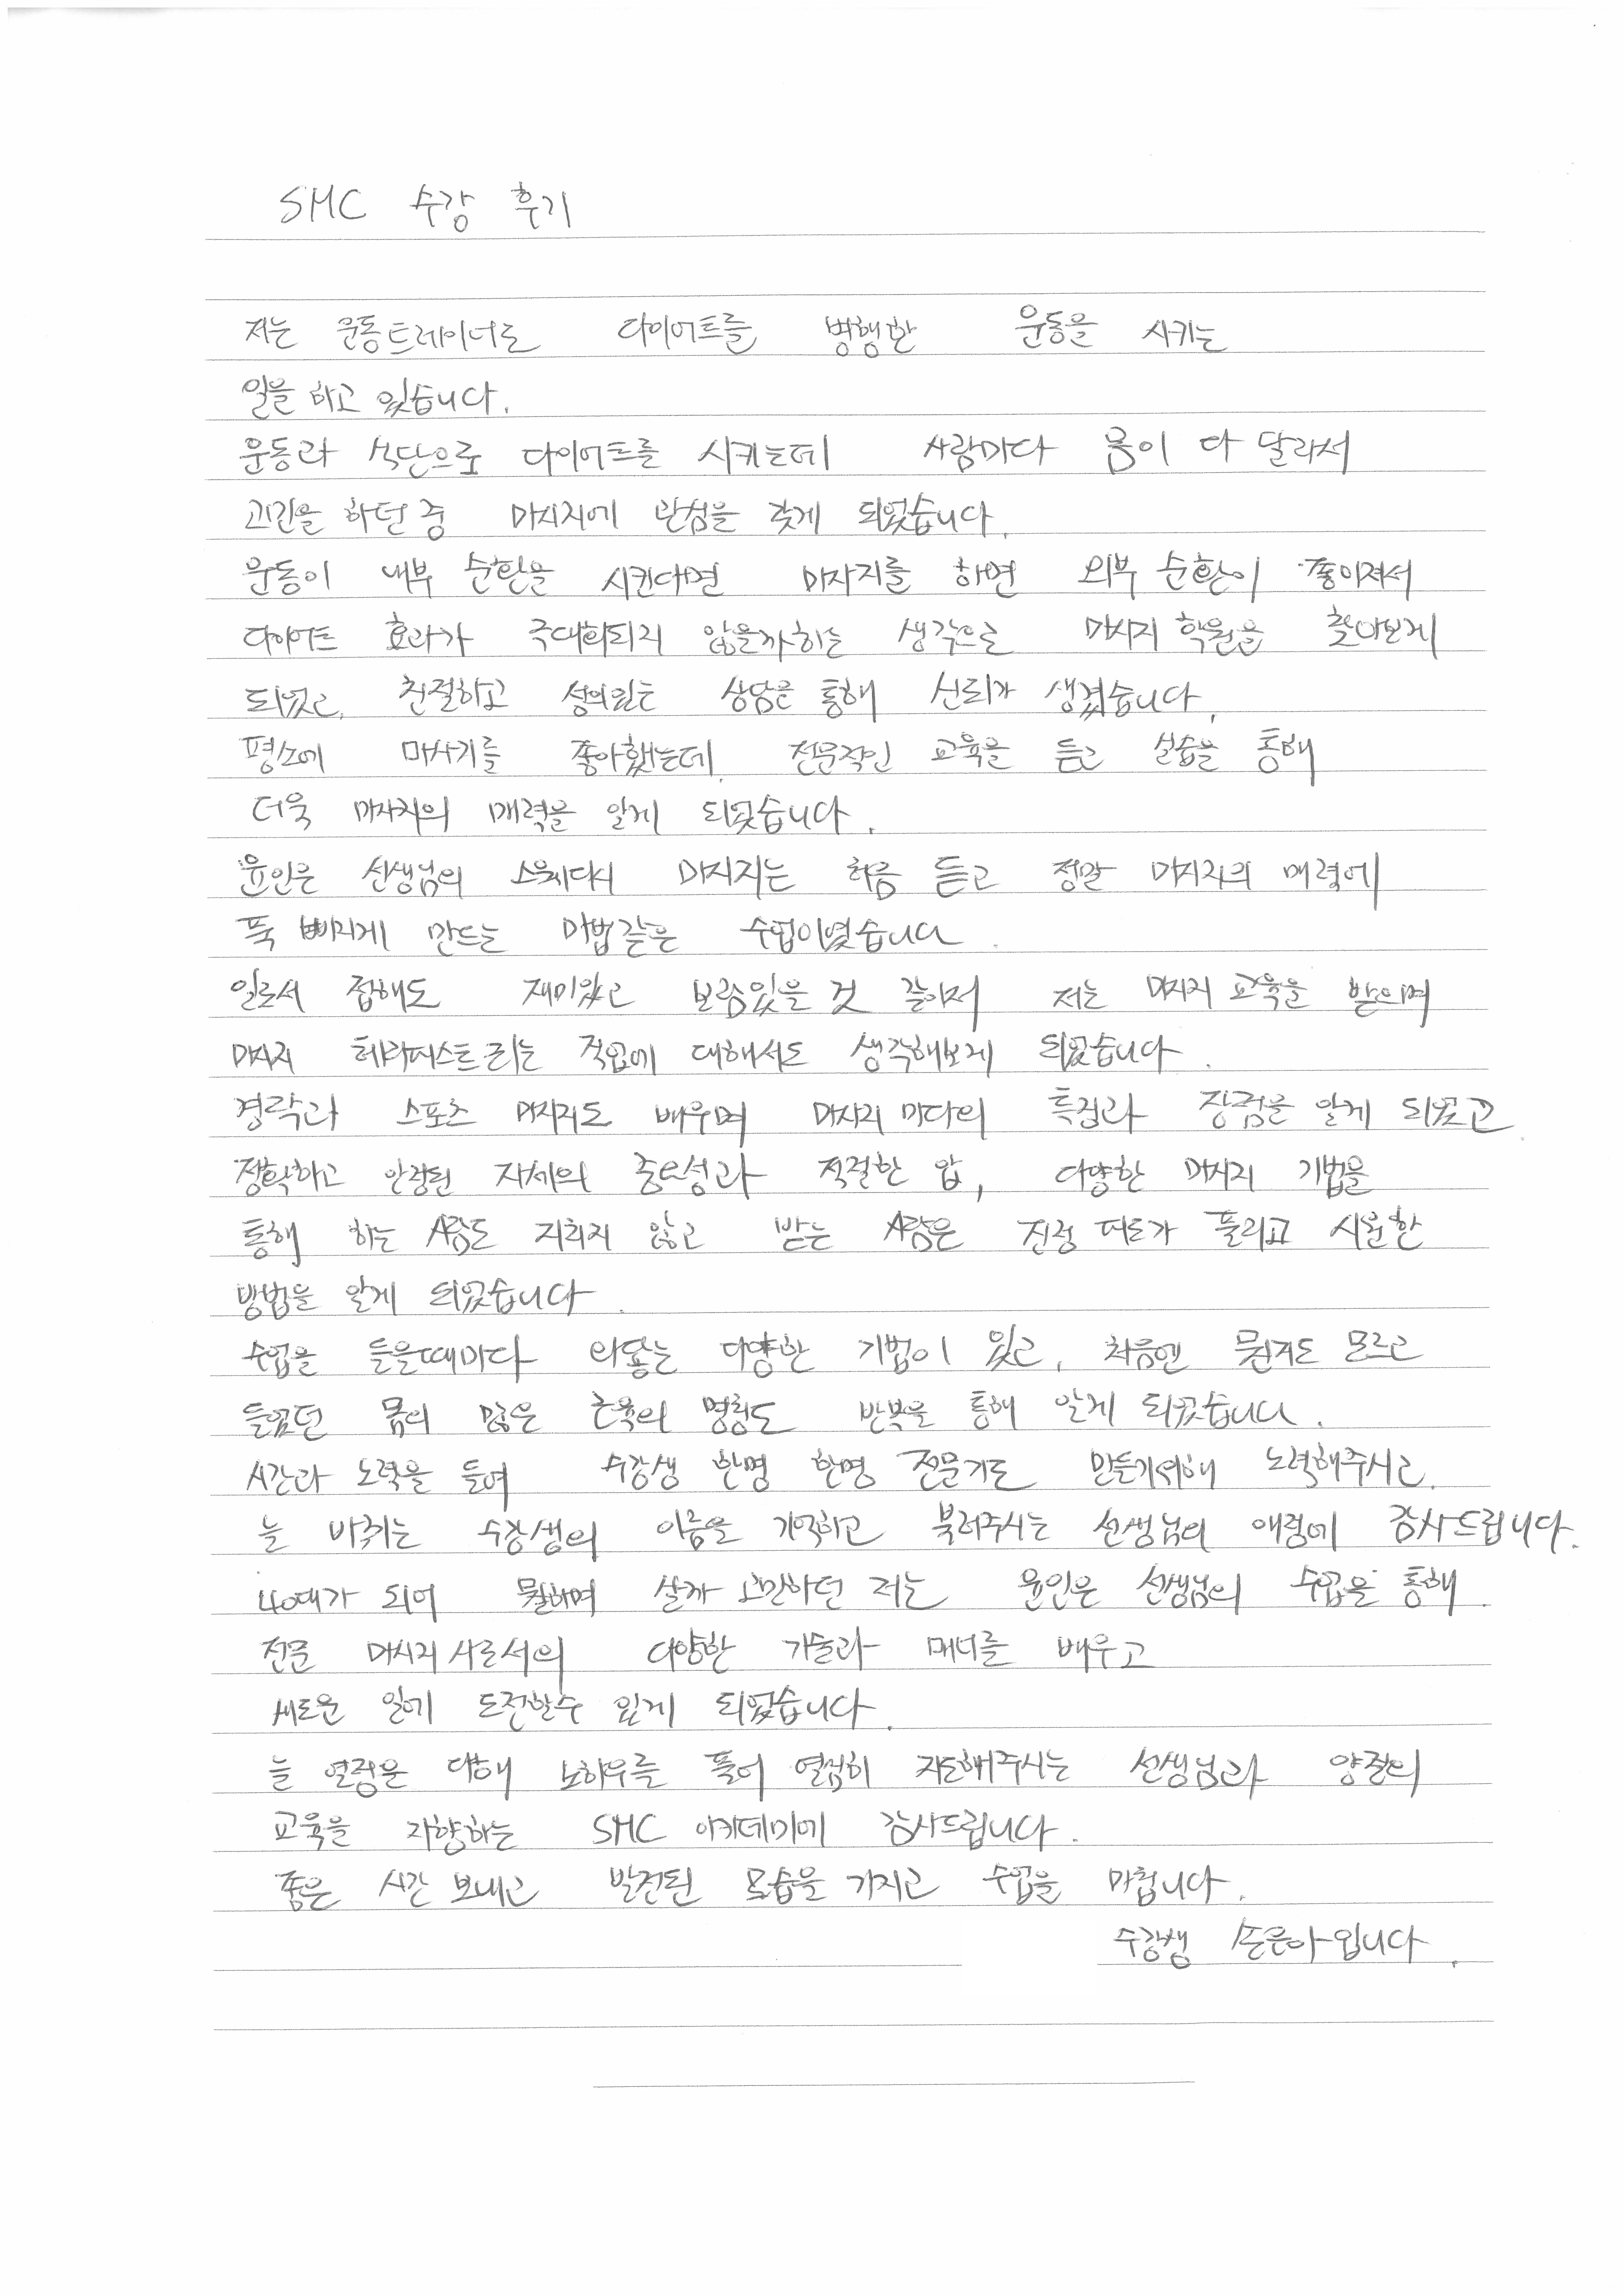 SMC 수강 후기
저는 운동트레이너로 다이어트를 병행한 운동을 시키는
일을 하고 있습니다.
운동과 식단으로 다이어트를 시키는데 사람마다 몸이 다 달라서
고민을 하던 중 마사지에 관심을 갖게 되었습니다.
운동이 내부 순환을 시킨다면 마사지를 하면 외부 순환이 좋아져서
다이어트 효과가 극대화되지 않을까하는 생각으로 마사지 학원을 찾아보게
되었고, 친절하고 성의있는 상담을 통해 신뢰가 생겼습니다.
평소에 마사지를 좋아했는데, 전문적인 교육을 듣고 실습을 통해
더욱 마사지의 매력을 알게 되었습니다.
윤인은 선생님의 스웨디시 마사지는 처음 듣고 정말 마사지의 매력에
푹 빠지게 만드는 마법같은 수업이였습니다.
일로서 접해도 재미있고 보람있을 것 같아서 저는 마사지 교육을 받으며
마사지 테라피스트라는 직업에 대해서도 생각해보게 되었습니다.
경락과 스포츠 마사지도 배우며 마사지 마다의 특징과 장점을 알게 되었고,
정확하고 안정된 자세의 중요성과 적절한 압, 다양한 마사지 기법을
통해 하는 사람도 지치지 않고 받는 사람은 진정 피로가 풀리고 시원한
방법을 알게 되었습니다.
수업을 들을때마다 와닿는 다양한 기법이 있고, 처음엔 뭔지도 모르고
들었던 몸의 많은 근육의 명칭도 반복을 통해 알게 되었습니다.
시간과 노력을 들여 수강생 한명 한명 전문가로 만들기위해 노력해주시고,
늘 바뀌는 수강생의 이름을 기억하고 불러주시는 선생님의 애정에 감사드립니다.
40대가 되어 뭘하며 살까 고민하던 저는 윤인은 선생님의 수업을 통해
전문 마사지사로서의 다양한 기술과 매너를 배우고
새로운 일에 도전할수 있게 되었습니다.
늘 열정을 다해 노하우를 풀어 열심히 지도해주시는 선생님과 양질의
교육을 지향하는 SMC 아카데미에 감사드립니다.
좋은 시간 보내고 발전된 모습을 가지고 수업을 마칩니다.
수강생 손은아입니다.